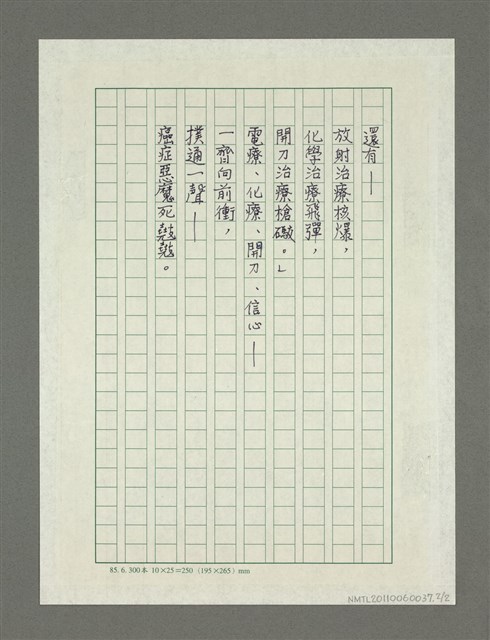 還有——
放射治療核爆，
化學治療飛彈，
開刀治療槍礮。」
電療、化療、開刀、信心——
一齊向前衝，
撲通一聲——
癌症惡魔死翹翹。
85. 6. 300本 10×25=250 (195×265) mm
NMTL20110060037.2/2